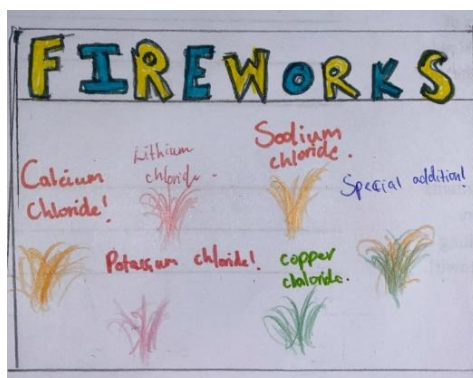 FIREWORKS
Calcium
Chloride!
Lithium
chloride.
Sodium
chloride.
Special addition!
Potassium chloride!
copper
chloride.